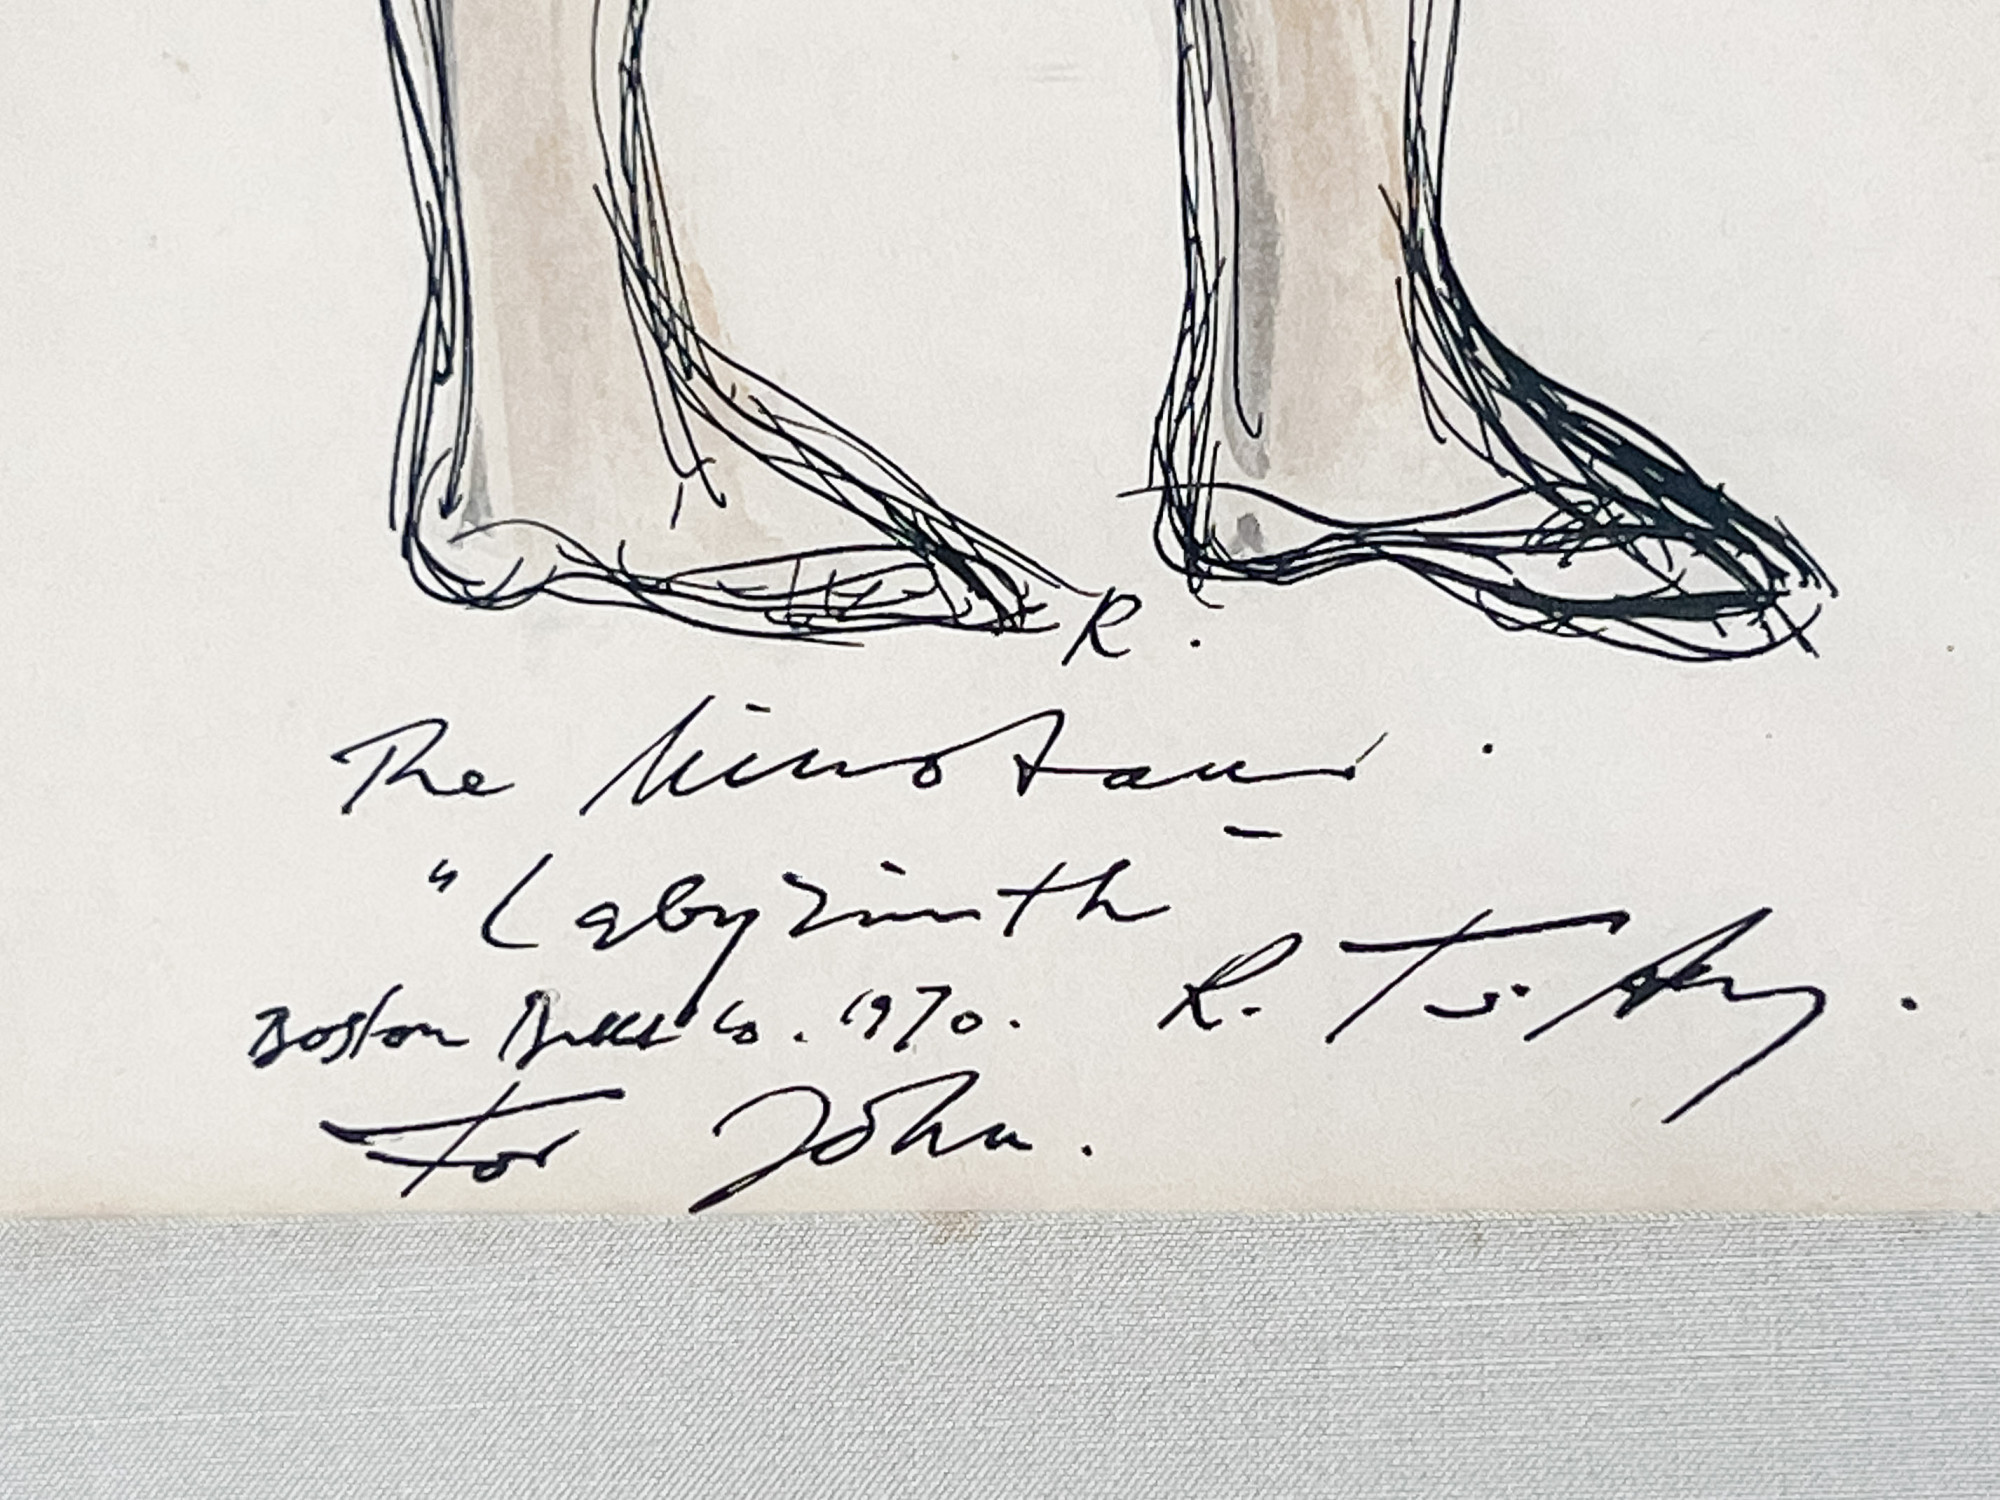 R.
The Minotaur.
"Labyrinth
Boston Ballet Co. 1970.
R.
For John.